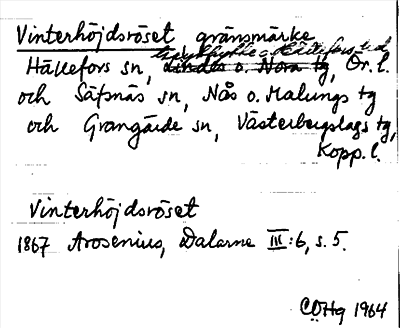 Vinterhöjdsröset gränsmärke
Hällefors sn, Lindes o. Nora tg, Ör. l.
och Säfsnäs sn, Nås o. Malungs tg
och Grangärde sn, Västerbergslags tg,
Kopp. l.
Vinterhöjdsröset
1867 Arosenius, Dalarne III:6, s. 5.
COHg 1964